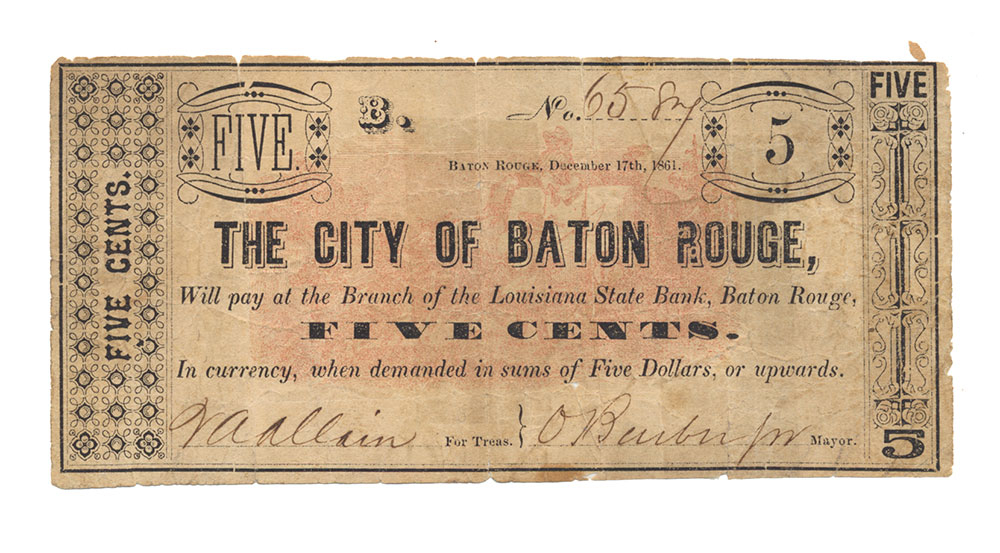 FIVE CENTS.
FIVE.
B.
No. 65
5
FIVE
BATON ROUGE, December 17th, 1861.
THE CITY OF BATON ROUGE,
Will pay at the Branch of the Louisiana State Bank, Baton Rouge,
FIVE CENTS.
In currency, when demanded in sums of Five Dollars, or upwards.
For Treas. } Mayor.
5